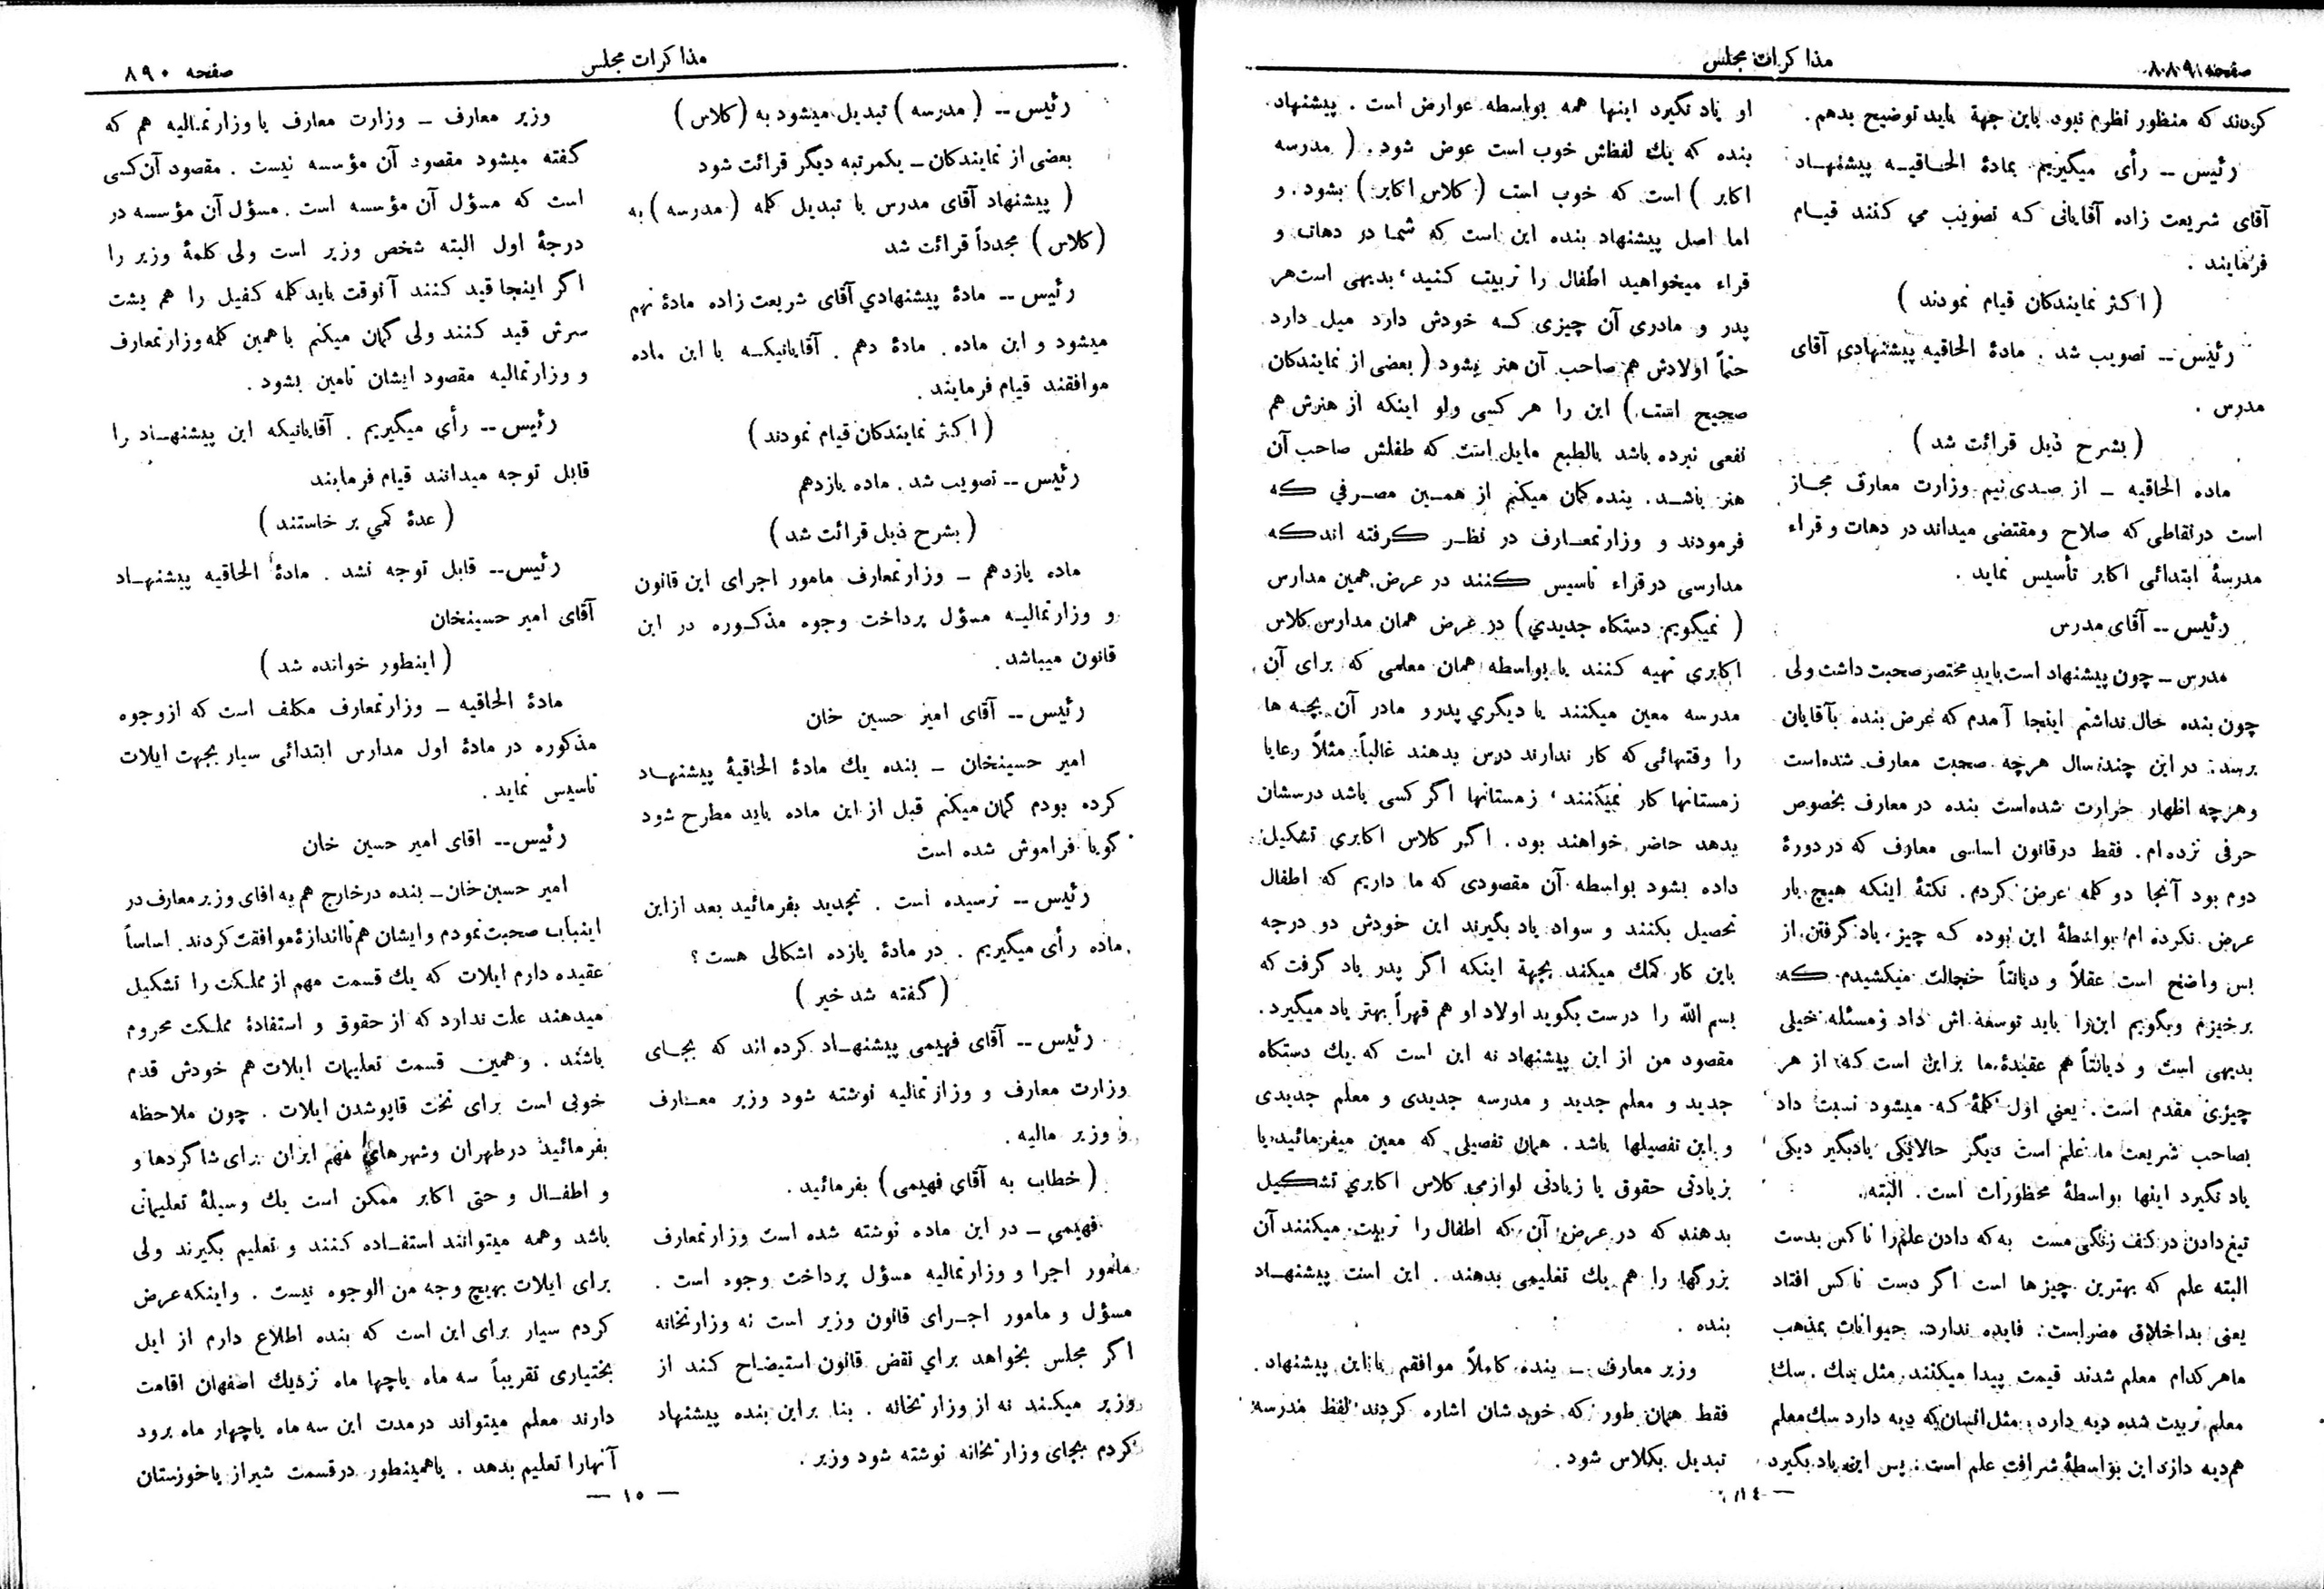 صفحه ۸۸۹
مذاکرات مجلس
کردند که منظور نظرم نبود باین جهة باید توضیح بدهم.
رئیس -- رأی میگیریم بمادۀ الحاقیه پیشنهاد
آقای شریعت زاده آقایانی که تصویب می کنند قیام
فرمایند .
( اکثر نمایندکان قیام نمودند )
رئیس -- تصویب شد . مادۀ الحاقیه پیشنهادی آقای
مدرس .
( بشرح ذیل قرائت شد )
ماده الحاقیه - از صدی نیم وزارت معارف مجاز
است در نقاطی که صلاح ومقتضی میداند در دهات و قراء
مدرسۀ ابتدائی اکابر تأسیس نماید .
رئیس -- آقای مدرس
مدرس - چون پیشنهاد است باید مختصر صحبت داشت ولی
چون بنده حال نداشتم اینجا آمدم که عرض بنده بآقایان
برسد : در این چند سال هرچه صحبت معارف شده است
وهرچه اظهار حرارت شده است بنده در معارف بخصوص
حرفی نزده ام. فقط در قانون اساسی معارف که در دورۀ
دوم بود آنجا دو کلمه عرض کردم. نکتۀ اینکه هیچ بار
عرض نکرده ام بواسطۀ این بوده که چیز یاد گرفتن از
بس واضح است عقلاً و دیانتاً خجالت میکشیدم که
برخیزم وبگویم این را باید توسعه اش داد ومسئله خیلی
بدیهی است و دیانتاً هم عقیدۀ ما براین است که از هر
چیزی مقدم است. یعنی اول کلمۀ که میشود نسبت داد
بصاحب شریعت ما علم است دیگر حالا یکی یادبگیر دیکی
یاد نگیرد اینها بواسطۀ محظورات است . البته
تیغ دادن در کف زنگی مست به که دادن علم را ناکس بدست
البته علم که بهترین چیزها است اگر دست ناکس افتاد
یعنی بداخلاق مضراست: فایده ندارد. حیوانات بمذهب
ماهر کدام معلم شدند قیمت پیدا میکنند مثل یک سك
معلم تربیت شده دیه دارد مثل انسان که دیه دارد سك معلم
هم دیه دارد این بواسطۀ شرافت علم است : پس این یاد بگیرد
او یاد نگیرد اینها همه بواسطه عوارض است . پیشنهاد
بنده که یك لفظش خوب است عوض شود . ( مدرسه
اکابر ) است که خوب است ( کلاس اکابر ) بشود . و
اما اصل پیشنهاد بنده این است که شما در دهات و
قراء میخواهید اطفال را تربیت کنید، بدیهی است هر
پدر و مادری آن چیزی که خودش دارد میل دارد
حتماً اولادش هم صاحب آن هنر بشود ( بعضی از نمایندکان
صحیح است ) این را هر کسی ولو اینکه از هنرش هم
نفعی نبرده باشد بالطبع مایل است که طفلش صاحب آن
هنر باشد. بنده کمان میکنم از همین مصرفي که
فرمودند و وزارتمعارف در نظر کرفته اند که
مدارسی در قراء تاسیس کنند در عرض همین مدارس
( نمیگویم دستکاه جدیدي ) در عرض همان مدارس کلاس
اکابري تهیه کنند یا بواسطه همان معلمی که برای آن
مدرسه معین میکنند یا دیگري پدر و مادر آن بچه ها
را وقتهائی که کار ندارند درس بدهند غالباً مثلاً رعایا
زمستانها کار نمیکنند، زمستانها اگر کسی باشد درسشان
بدهد حاضر خواهند بود. اگر کلاس اکابري تشکیل
داده بشود بواسطه آن مقصودی که ما داریم که اطفال
تحصیل بکنند و سواد یاد بگیرند این خودش دو درجه
باین کار کمك میکند بجهة اینکه اگر پدر یاد گرفت که
بسم الله را درست بگوید اولاد او هم قهراً بهتر یاد میگیرد.
مقصود من از این پیشنهاد نه این است که یك دستکاه
جدید و معلم جدید و مدرسه جدیدی و معلم جدیدی
و این تفصیلها باشد . همان تفصیلی که معین میفرمائید، یا
بزیادتی حقوق یا زیادتی لوازمی کلاس اکابري تشکیل
بدهند که در عرض آن که اطفال را تربیت میکنند آن
بزرگها را هم یك تعلیمی بدهند . این است پیشنهاد
بنده .
وزیر معارف - بنده کاملاً موافقم با این پیشنهاد .
فقط همان طور که خودشان اشاره کردند لفظ مدرسه
تبدیل بکلاس شود .
— ١٤ —
مذاکرات مجلس
صفحه ۸۹۰
رئیس -- ( مدرسه ) تبدیل میشود به (کلاس)
بعضی از نمایندکان - یکمرتبه دیگر قرائت شود
( پیشنهاد آقای مدرس با تبدیل کلمه ( مدرسه ) به
(کلاس) مجدداً قرائت شد
رئیس -- مادۀ پیشنهادي آقای شریعت زاده مادۀ نهم
میشود و این ماده . مادۀ دهم . آقایانیکه با این ماده
موافقند قیام فرمایند .
( اکثر نمایندکان قیام نمودند )
رئیس -- تصویب شد . ماده یازدهم
( بشرح ذیل قرائت شد )
ماده یازدهم - وزارتمعارف مامور اجرای این قانون
و وزارتمالیه مسؤل پرداخت وجوه مذکوره در این
قانون میباشد .
رئیس -- آقای امیر حسین خان
امیر حسینخان - بنده یك مادۀ الحاقیۀ پیشنهاد
کرده بودم گمان میکنم قبل از این ماده باید مطرح شود
گویا فراموش شده است
رئیس -- نرسیده است . تجدید بفرمائید بعد از این
ماده رأی میگیریم . در مادۀ یازده اشکالی هست ؟
( گفته شد خیر )
رئیس -- آقای فهیمی پیشنهاد کرده اند که بجای
وزارت معارف و وزارتمالیه نوشته شود وزیر معارف
و وزیر مالیه .
( خطاب به آقای فهیمی ) بفرمائید .
فهیمی - در این ماده نوشته شده است وزارتمعارف
مامور اجرا و وزارتمالیه مسؤل پرداخت وجوه است .
مسؤل و مامور اجرای قانون وزیر است نه وزارتخانه
اگر مجلس بخواهد براي نقض قانون استیضاح کند از
وزیر میکند نه از وزارتخانه . بنا براین بنده پیشنهاد
کردم بجای وزارتخانه نوشته شود وزیر .
وزیر معارف - وزارت معارف یا وزارتمالیه هم که
گفته میشود مقصود آن مؤسسه نیست . مقصود آن کسی
است که مسؤل آن مؤسسه است . مسؤل آن مؤسسه در
درجۀ اول البته شخص وزیر است ولی کلمۀ وزیر را
اگر اینجا قید کنند آنوقت باید کلمه کفیل را هم پشت
سرش قید کنند ولی گمان میکنم با همین کلمه وزارتمعارف
و وزارتمالیه مقصود ایشان تامین بشود .
رئیس -- رأی میگیریم . آقایانیکه این پیشنهاد را
قابل توجه میدانند قیام فرمایند
( عدۀ کمي بر خاستند )
رئیس -- قابل توجه نشد . مادۀ الحاقیه پیشنهاد
آقای امیر حسینخان
( اینطور خوانده شد )
مادۀ الحاقیه - وزارتمعارف مکلف است که از وجوه
مذکوره در مادۀ اول مدارس ابتدائی سیار بجهت ایلات
تاسیس نماید .
رئیس -- اقای امیر حسین خان
امیر حسین خان - بنده در خارج هم به اقای وزیر معارف در
اینباب صحبت نمودم وایشان هم تا اندازۀ موافقت کردند. اساساً
عقیده دارم ایلات که یك قسمت مهم از مملکت را تشکیل
میدهند علت ندارد که از حقوق و استفادۀ مملکت محروم
باشند . وهمین قسمت تعلیمات ایلات هم خودش قدم
خوبی است برای تخت قاپوشدن ایلات . چون ملاحظه
بفرمائید در طهران وشهرهای مهم ایران برای شاگردها و
و اطفال و حتی اکابر ممکن است یك وسیلۀ تعلیمات
باشد وهمه میتوانند استفاده کنند و تعلیم بگیرند ولی
برای ایلات بهیچ وجه من الوجوه نیست . واینکه عرض
کردم سیار برای این است که بنده اطلاع دارم از ایل
بختیاری تقریباً سه ماه یاچها ماه نزدیك اصفهان اقامت
دارند معلم میتواند در مدت این سه ماه یاچهار ماه برود
آنهارا تعلیم بدهد . یاهمینطور در قسمت شیراز یاخوزستان
— ۱۵ —